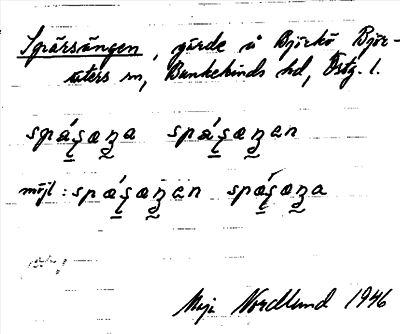 Sparsängen, gärde å Björkö Björ-
säters sn, Bankekinds hd, Östg. l.
spáşaza spáşazen
möjl: spáşazen spáşaza
Maja Nordlund 1946